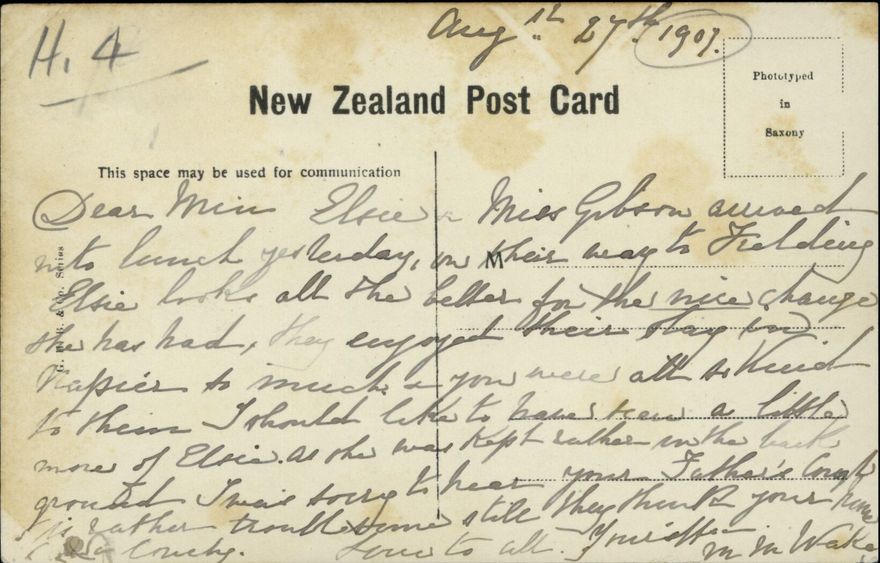 H. 4
Augst 27th 1907.
New Zealand Post Card
Phototyped
in
Saxony
This space may be used for communication
Dear Elsie & Miss Gibson arrived
to lunch yesterday, on their way to Fielding
Elsie looks all the better for the nice change
she has had, they enjoyed their stay in
Napier so much & you were all so kind
to them I should like to have seen a little
more of Elsie. as she was kept rather in the back
ground I was sorry to hear your Father's Cough
is rather troublesome still they think your
Country. Love to all. Yours M M Wake
M
& Co. Series